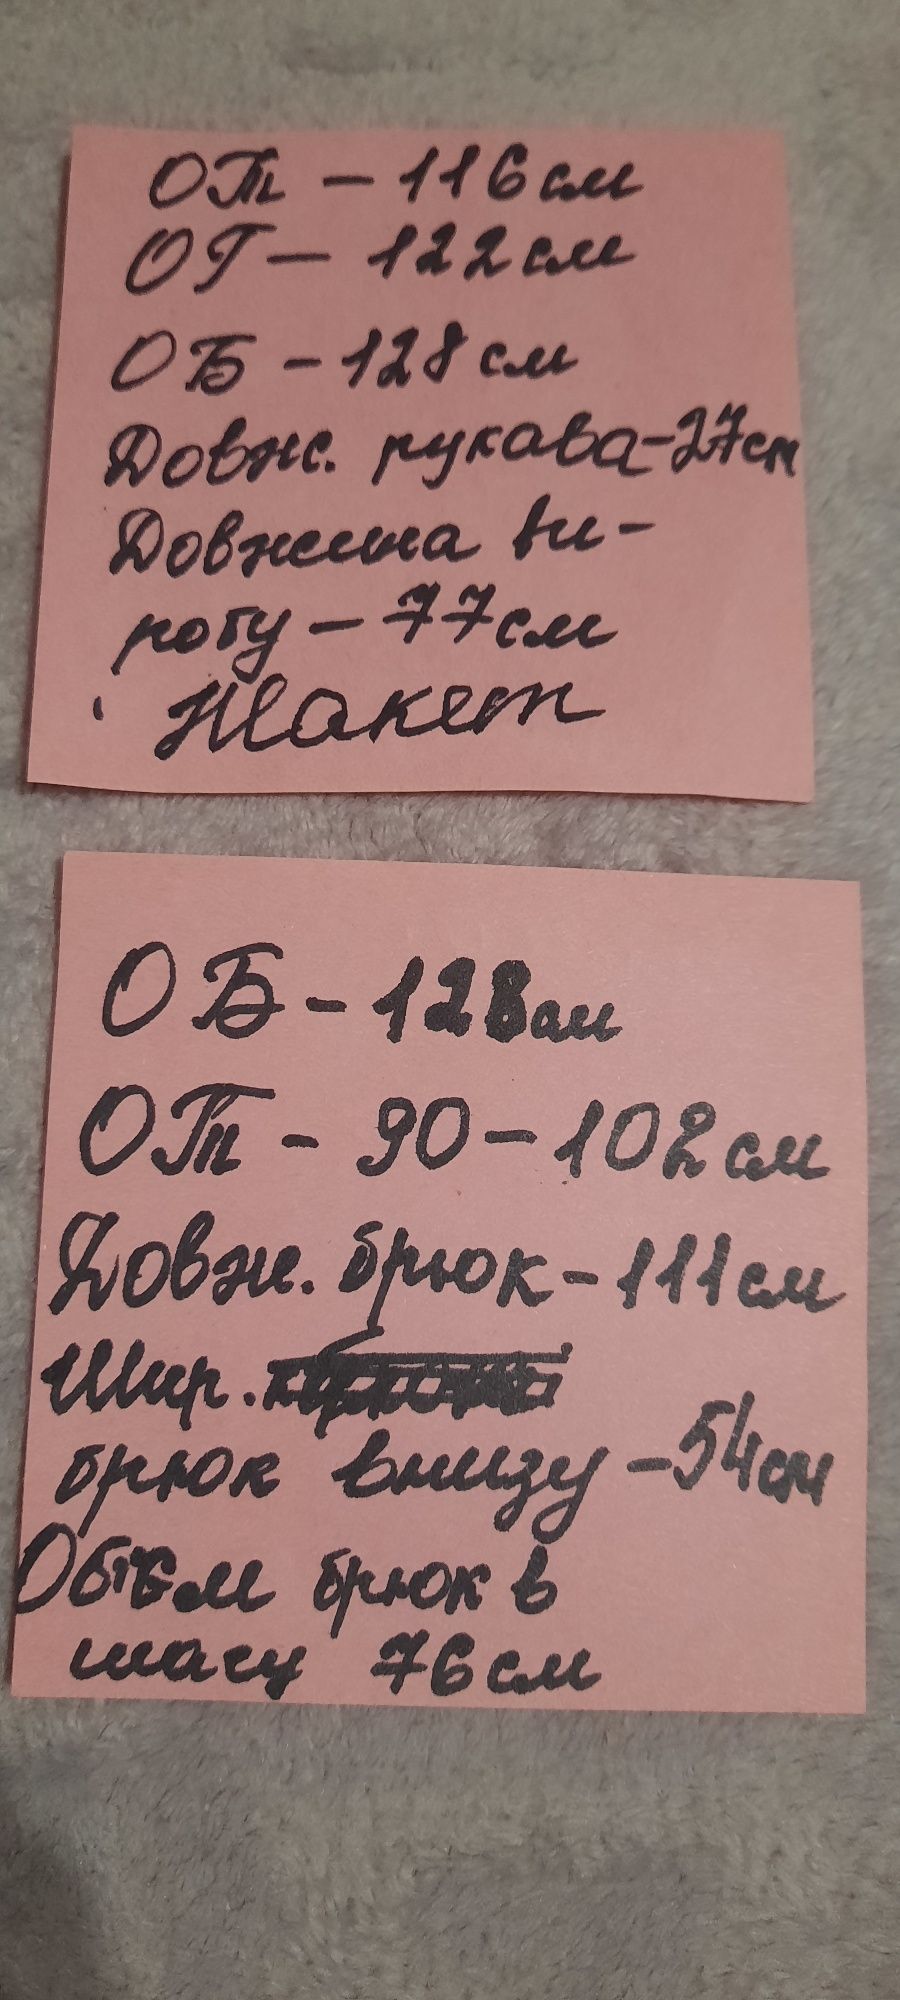 ОТ - 116 см
ОГ - 122 см
ОБ - 128 см
Довж. рукава - 27 см
Довжина ви-
робу - 77 см
Жакет
ОБ - 128 см
ОТ - 90 - 102 см
Довж. брюк - 111 см
Шир.
брюк внизу - 54 см
Обʼєм брюк в
шагу 76 см